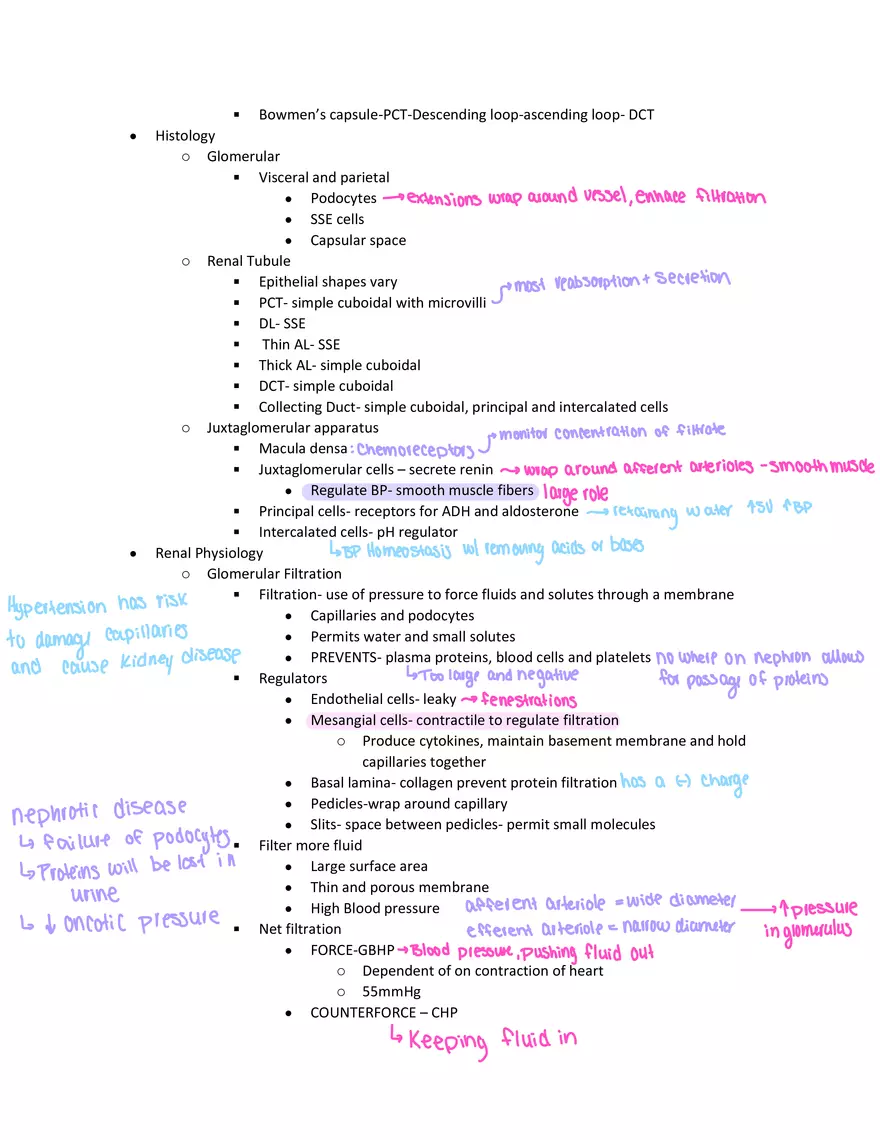 ▪ Bowmen's capsule-PCT-Descending loop-ascending loop- DCT
● Histology
○ Glomerular
▪ Visceral and parietal
● Podocytes → extensions wrap around vessel, enhace filtration
● SSE cells
● Capsular space
○ Renal Tubule
▪ Epithelial shapes vary
→ most reabsorption + secretion
▪ PCT- simple cuboidal with microvilli
▪ DL- SSE
▪ Thin AL- SSE
▪ Thick AL- simple cuboidal
▪ DCT- simple cuboidal
▪ Collecting Duct- simple cuboidal, principal and intercalated cells
○ Juxtaglomerular apparatus
→ monitor concentration of filtrate
▪ Macula densa : chemoreceptors
▪ Juxtaglomerular cells – secrete renin → wrap around afferent arterioles - smooth muscle
● Regulate BP- smooth muscle fibers large role
▪ Principal cells- receptors for ADH and aldosterone → retaining water ↑SV ↑BP
▪ Intercalated cells- pH regulator
↳ BP Homeostasis w/ removing acids or bases
● Renal Physiology
○ Glomerular Filtration
▪ Filtration- use of pressure to force fluids and solutes through a membrane
Hypertension has risk
to damage capillaries
and cause kidney disease
● Capillaries and podocytes
● Permits water and small solutes
● PREVENTS- plasma proteins, blood cells and platelets no where on nephron allows
for passage of proteins
↳ Too large and negative
▪ Regulators
● Endothelial cells- leaky → fenestrations
● Mesangial cells- contractile to regulate filtration
○ Produce cytokines, maintain basement membrane and hold
capillaries together
● Basal lamina- collagen prevent protein filtration has a (-) charge
● Pedicles-wrap around capillary
● Slits- space between pedicles- permit small molecules
nephrotic disease
↳ failure of podocytes
↳ Proteins will be lost in
urine
↳ ↓ oncotic pressure
▪ Filter more fluid
● Large surface area
● Thin and porous membrane
● High Blood pressure afferent arteriole = wide diameter → ↑ pressure
efferent arteriole = narrow diameter in glomerulus
▪ Net filtration
● FORCE-GBHP → Blood pressure, pushing fluid out
○ Dependent of on contraction of heart
○ 55mmHg
● COUNTERFORCE – CHP
↳ Keeping fluid in